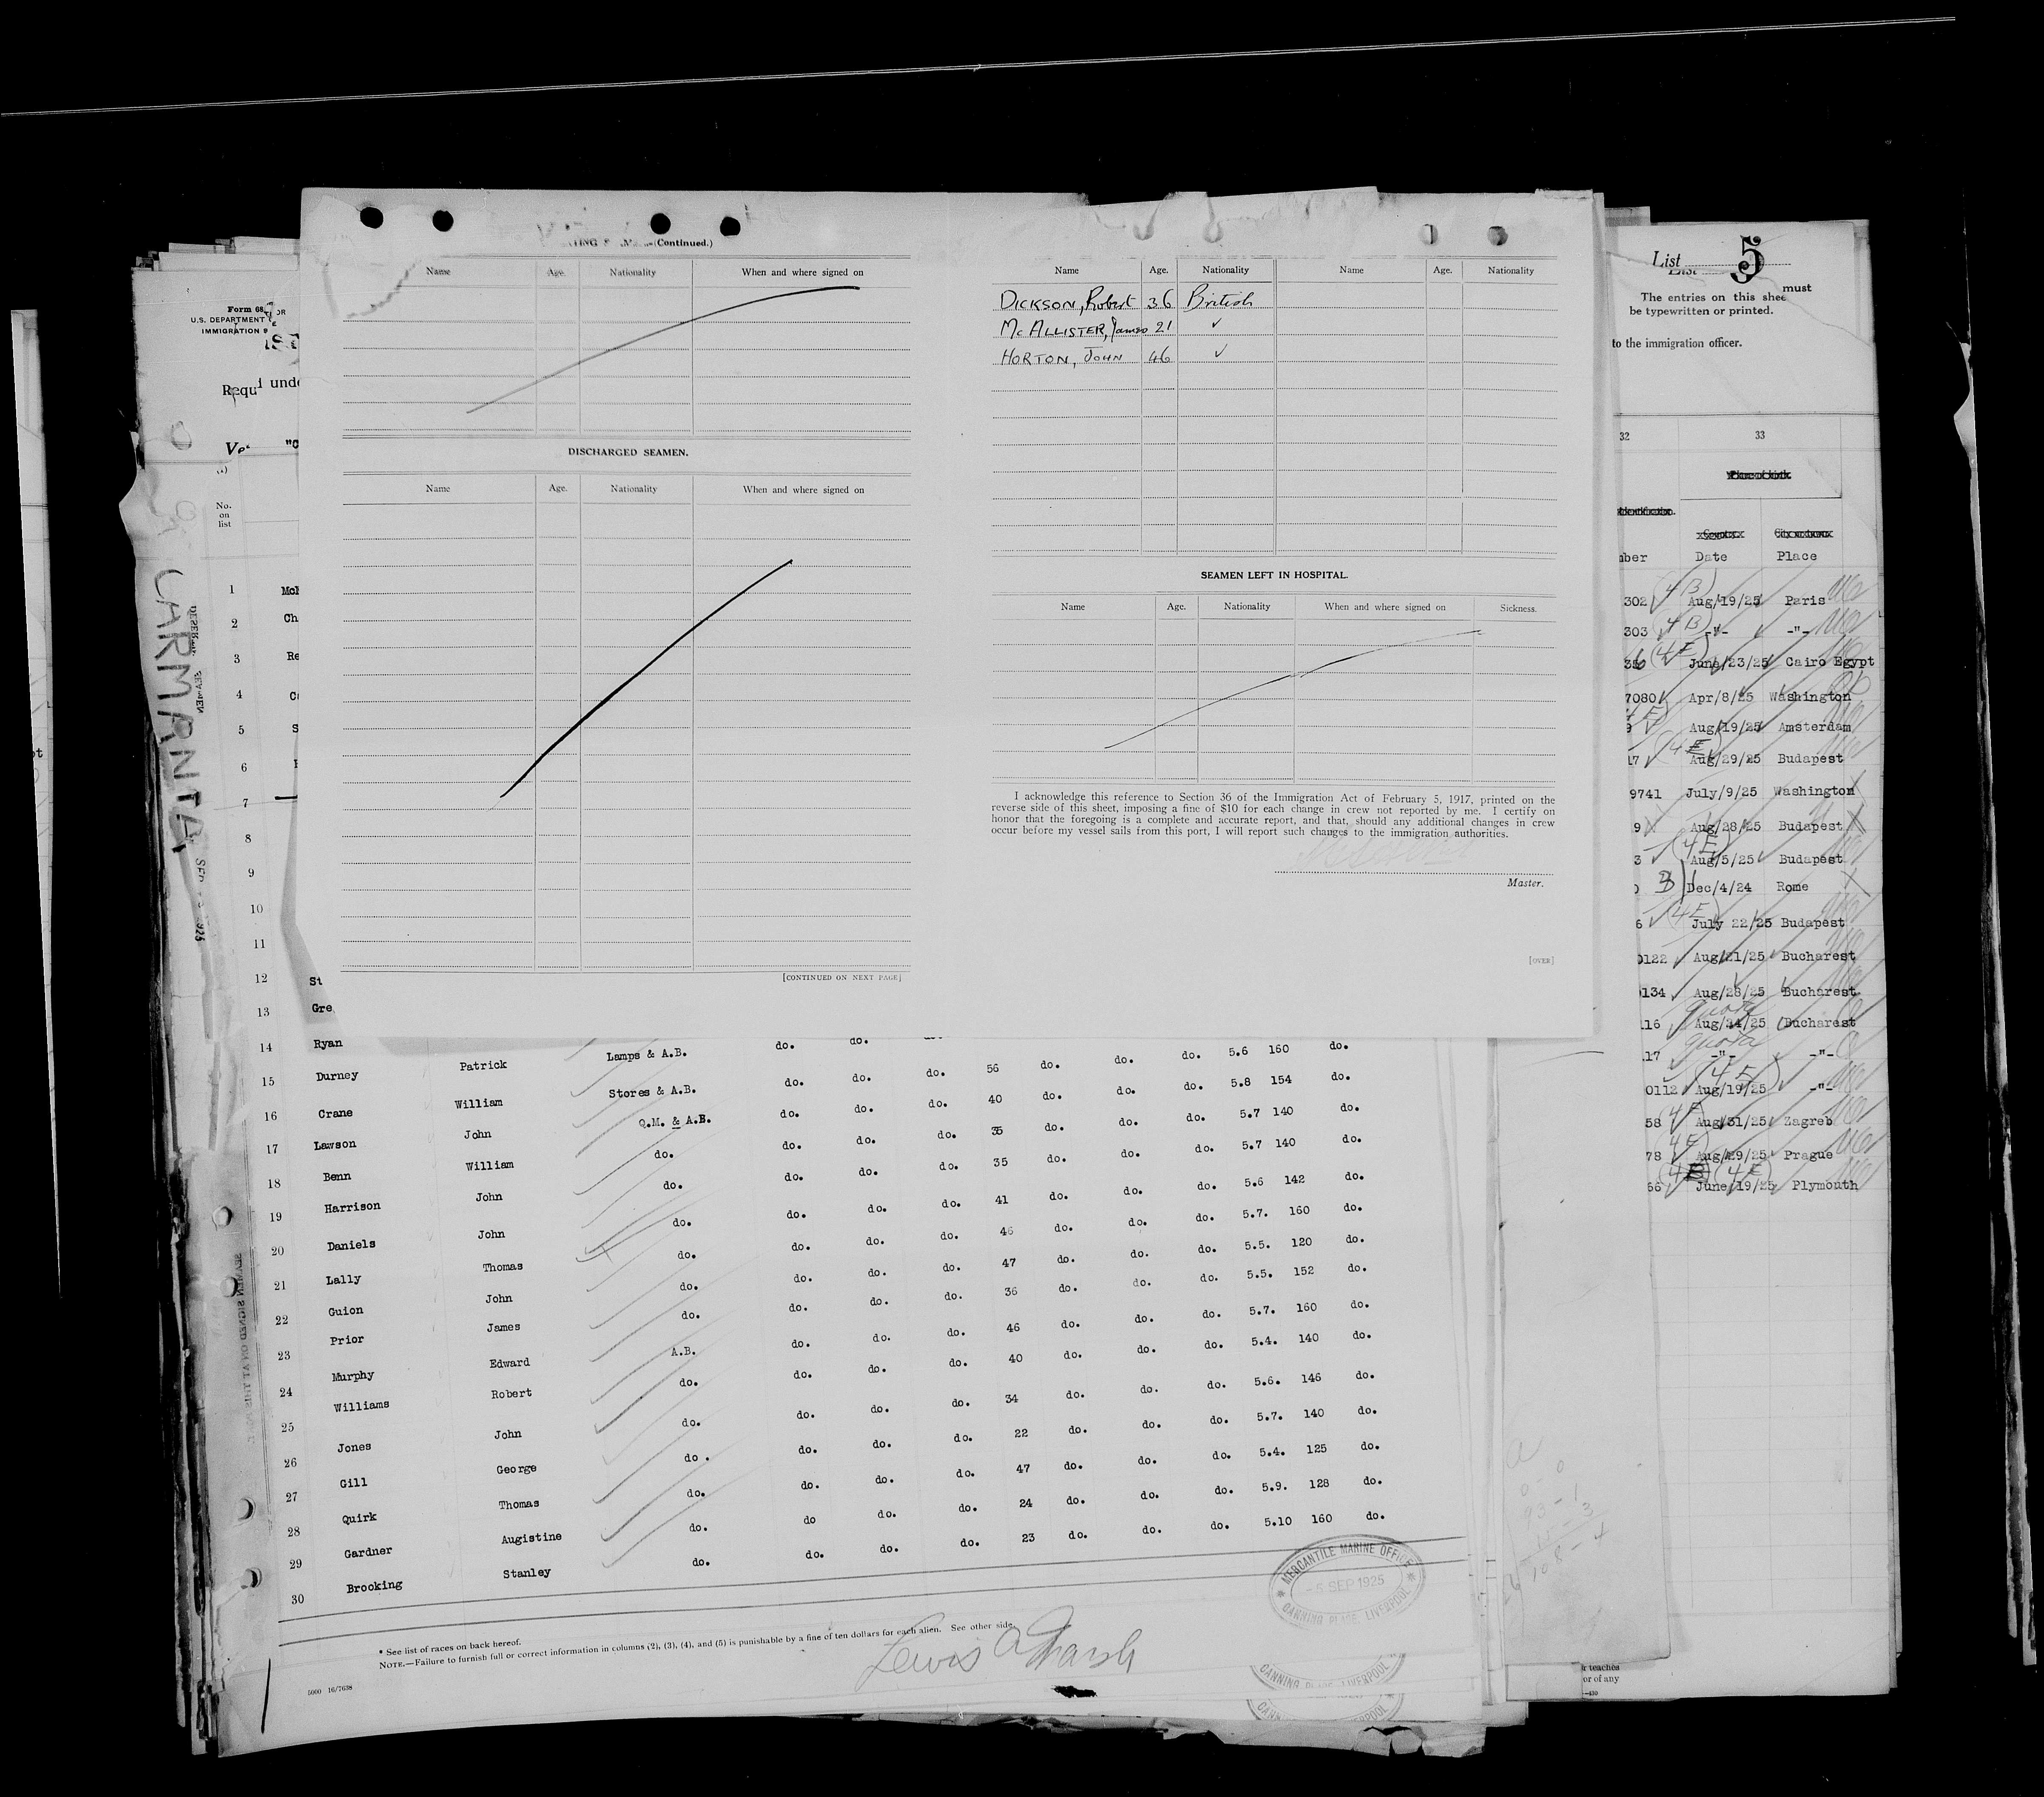 (Continued.)
Name Age. Nationality When and where signed on
DISCHARGED SEAMEN.
Name Age. Nationality When and where signed on
[CONTINUED ON NEXT PAGE]
Name Age. Nationality Name Age. Nationality
DICKSON, Robert 36 British
McALLISTER, James 21 ✓
HORTON, JOHN 46 ✓
SEAMEN LEFT IN HOSPITAL.
Name Age. Nationality When and where signed on Sickness.
I acknowledge this reference to Section 36 of the Immigration Act of February 5, 1917, printed on the
reverse side of this sheet, imposing a fine of $10 for each change in crew not reported by me. I certify on
honor that the foregoing is a complete and accurate report, and that, should any additional changes in crew
occur before my vessel sails from this port, I will report such changes to the immigration authorities.
Master.
[OVER]
Form 68
U.S. DEPARTMENT
IMMIGRATION
CARMANIA
No.
on
list
1
2
3
4
5
6
7
8
9
10
11
12 St
13 Gre
14 Ryan Patrick Lamps & A.B. do. do. 5.6 160 do.
15 Durney William Stores & A.B. do. do. do. 56 do. do. do. 5.8 154 do.
16 Crane John Q.M. & A.B. do. do. do. 40 do. do. do. 5.7 140 do.
17 Lawson William do. do. do. do. 35 do. do. do. 5.7 140 do.
18 Benn John do. do. do. do. 35 do. do. do. 5.6 142 do.
19 Harrison John do. do. do. do. 41 do. do. do. 5.7. 160 do.
20 Daniels Thomas do. do. do. do. 46 do. do. do. 5.5. 120 do.
21 Lally John do. do. do. do. 47 do. do. do. 5.5. 152 do.
22 Guion James do. do. do. do. 36 do. do. do. 5.7. 160 do.
23 Prior Edward A.B. do. do. do. 46 do. do. do. 5.4. 140 do.
24 Murphy Robert do. do. do. do. 40 do. do. do. 5.6. 146 do.
25 Williams John do. do. do. do. 34 do. do. do. 5.7. 140 do.
26 Jones George do. do. do. do. 22 do. do. do. 5.4. 125 do.
27 Gill Thomas do. do. do. do. 47 do. do. do. 5.9. 128 do.
28 Quirk Augistine do. do do. do. 24 do. do. do. 5.10 160 do.
29 Gardner Stanley do. do. do. do. 23 do. do. do.
30 Brooking
* See list of races on back hereof.
NOTE.—Failure to furnish full or correct information in columns (2), (3), (4), and (5) is punishable by a fine of ten dollars for each alien. See other side.
5000 16/7638
MERCANTILE MARINE OFFICE
-5 SEP 1925
CANNING PLACE, LIVERPOOL
List 5
The entries on this sheet must
be typewritten or printed.
to the immigration officer.
32 33
Date Place
302 (4 B) Aug/19/25 Paris
303 (4 B) -"- -"-
(4 E) June/23/25 Cairo Egypt
7080 Apr/8/25 Washington
9 Aug/19/25 Amsterdam
17 (4 E) Aug/29/25 Budapest
9741 July/9/25 Washington
9 Aug/28/25 Budapest
3 (4 E) Aug/5/25 Budapest
Dec/4/24 Rome
6 (4 E) July 22/25 Budapest
0122 Aug/21/25 Bucharest
0134 Aug/28/25 Bucharest
116 quota Aug/24/25 Bucharest
17 quota -"- -"-
0112 (4 E) Aug/19/25 -"-
58 4 E Aug/31/25 Zagreb
78 (4 E) Aug/29/25 Prague
66 (4 E) June/19/25 Plymouth